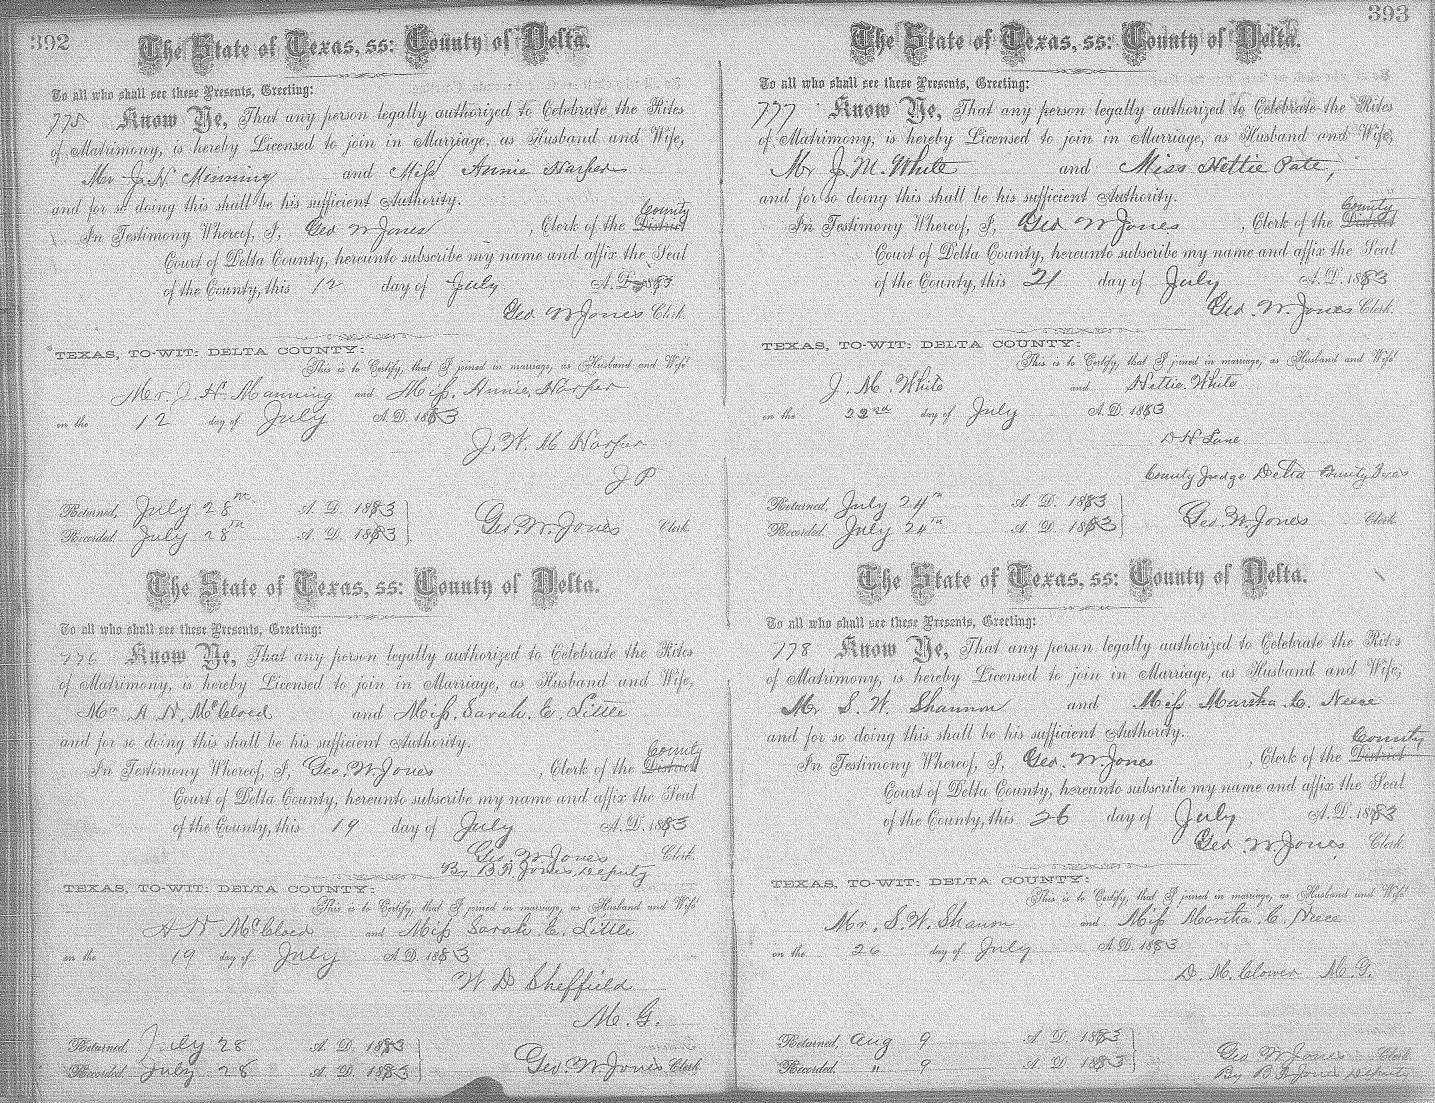 392
The State of Texas, ss: County of Delta.
To all who shall see these Presents, Greeting:
775 Know Ye, That any person legally authorized to Celebrate the Rites
of Matrimony, is hereby Licensed to join in Marriage, as Husband and Wife,
Mr J. N. Menning and Miss Annie Harper
and for so doing this shall be his sufficient Authority.
In Testimony Whereof, I, Geo W Jones, Clerk of the District County
Court of Delta County, hereunto subscribe my name and affix the Seal
of the County, this 12 day of July A.D. 1883
Geo W Jones Clerk.
TEXAS, TO-WIT: DELTA COUNTY:
This is to Certify, that I joined in marriage, as Husband and Wife
Mr. J. N. Manning and Miss. Annie. Harper
on the 12 day of July A.D. 1883
J. W. M Harper
J P
Returned, July 28th A. D. 1883
Recorded. July 28th A. D. 1883 Geo. W. Jones Clerk
The State of Texas, ss: County of Delta.
To all who shall see these Presents, Greeting:
776 Know Ye, That any person legally authorized to Celebrate the Rites
of Matrimony, is hereby Licensed to join in Marriage, as Husband and Wife,
Mr A N. McCloed and Miss. Sarah. E. Little
and for so doing this shall be his sufficient Authority.
In Testimony Whereof, I, Geo. W. Jones, Clerk of the District County
Court of Delta County, hereunto subscribe my name and affix the Seal
of the County, this 19 day of July A.D. 1883
Geo. W Jones Clerk
By B. F. Jones, Deputy
TEXAS, TO-WIT: DELTA COUNTY:
This is to Certify, that I joined in marriage, as Husband and Wife
A N McCloed and Miss Sarah. E. Little
on the 19 day of July A.D. 1883
W D Sheffield
M. G.
Returned, July 28 A. D. 1883
Recorded July 28 A. D. 1883 Geo. W. Jones Clerk
393
The State of Texas, ss: County of Delta.
To all who shall see these Presents, Greeting:
777 Know Ye, That any person legally authorized to Celebrate the Rites
of Matrimony, is hereby Licensed to join in Marriage, as Husband and Wife,
Mr J. M. White and Miss Hettie Pate,
and for so doing this shall be his sufficient Authority.
In Testimony Whereof, I, Geo W Jones, Clerk of the District County
Court of Delta County, hereunto subscribe my name and affix the Seal
of the County, this 21 day of July A.D. 1883
Geo. W. Jones Clerk.
TEXAS, TO-WIT: DELTA COUNTY:
This is to Certify, that I joined in marriage, as Husband and Wife
J. M. White and Hettie. White
on the 22nd day of July A.D. 1883
D N Lane
County Judge Delta County Texas
Returned, July 24th A. D. 1883
Recorded. July 24th A. D. 1883 Geo. W. Jones Clerk
The State of Texas, ss: County of Delta.
To all who shall see these Presents, Greeting:
778 Know Ye, That any person legally authorized to Celebrate the Rites
of Matrimony, is hereby Licensed to join in Marriage, as Husband and Wife,
Mr S. W. Shannon and Miss Martha. C. Neese
and for so doing this shall be his sufficient Authority.
In Testimony Whereof, I, Geo. W. Jones, Clerk of the District County
Court of Delta County, hereunto subscribe my name and affix the Seal
of the County, this 26 day of July A.D. 1883
Geo. W. Jones Clerk.
TEXAS, TO-WIT: DELTA COUNTY:
This is to Certify, that I joined in marriage, as Husband and Wife
Mr. S. W. Shanon and Miss Martha. C. Neece
on the 26 day of July A.D. 1883
D. M. Clower M. G.
Returned, Aug 9 A. D. 1883
Recorded. " 9 A. D. 1883 Geo W Jones Clerk
By B F Jones Deputy